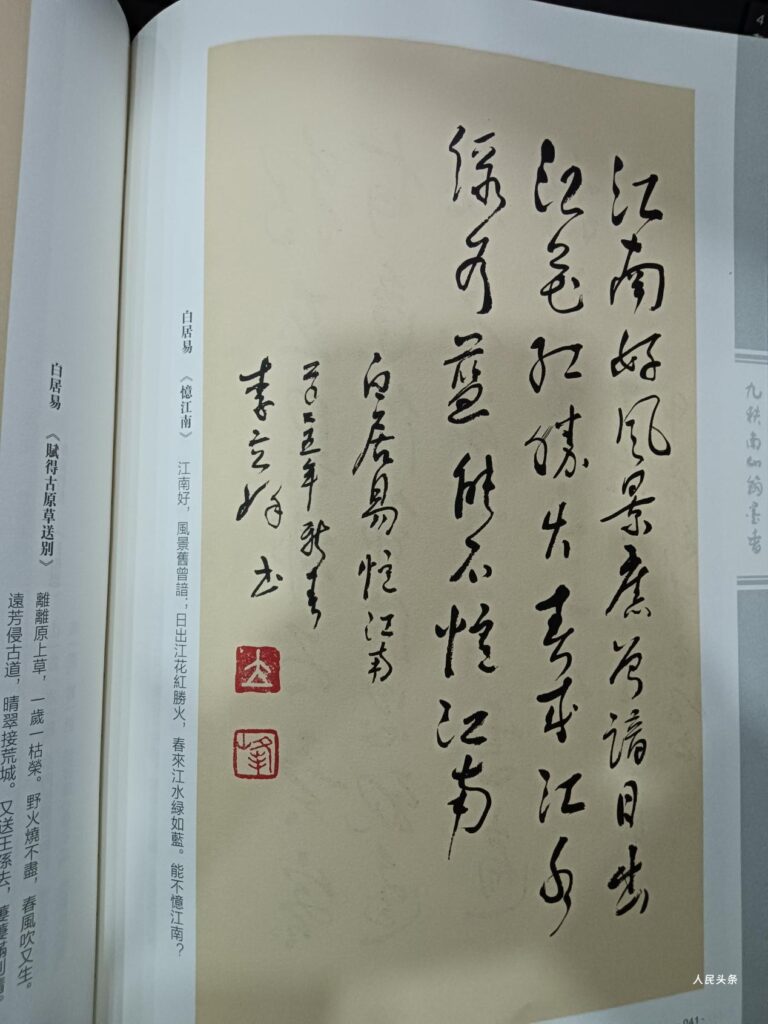 九秩南山翰墨香
江南好風景舊曾諳日出
江花紅勝火春來江水
綠如藍能不憶江南
白居易憶江南
年新春
李立峰书
立
峰
白居易 《憶江南》 江南好，風景舊曾諳；日出江花紅勝火，春來江水緑如藍。能不憶江南？
白居易 《賦得古原草送別》 離離原上草，一歲一枯榮。野火燒不盡，春風吹又生。
遠芳侵古道，晴翠接荒城。又送王孫去，萋萋滿別情。
041
人民头条
4